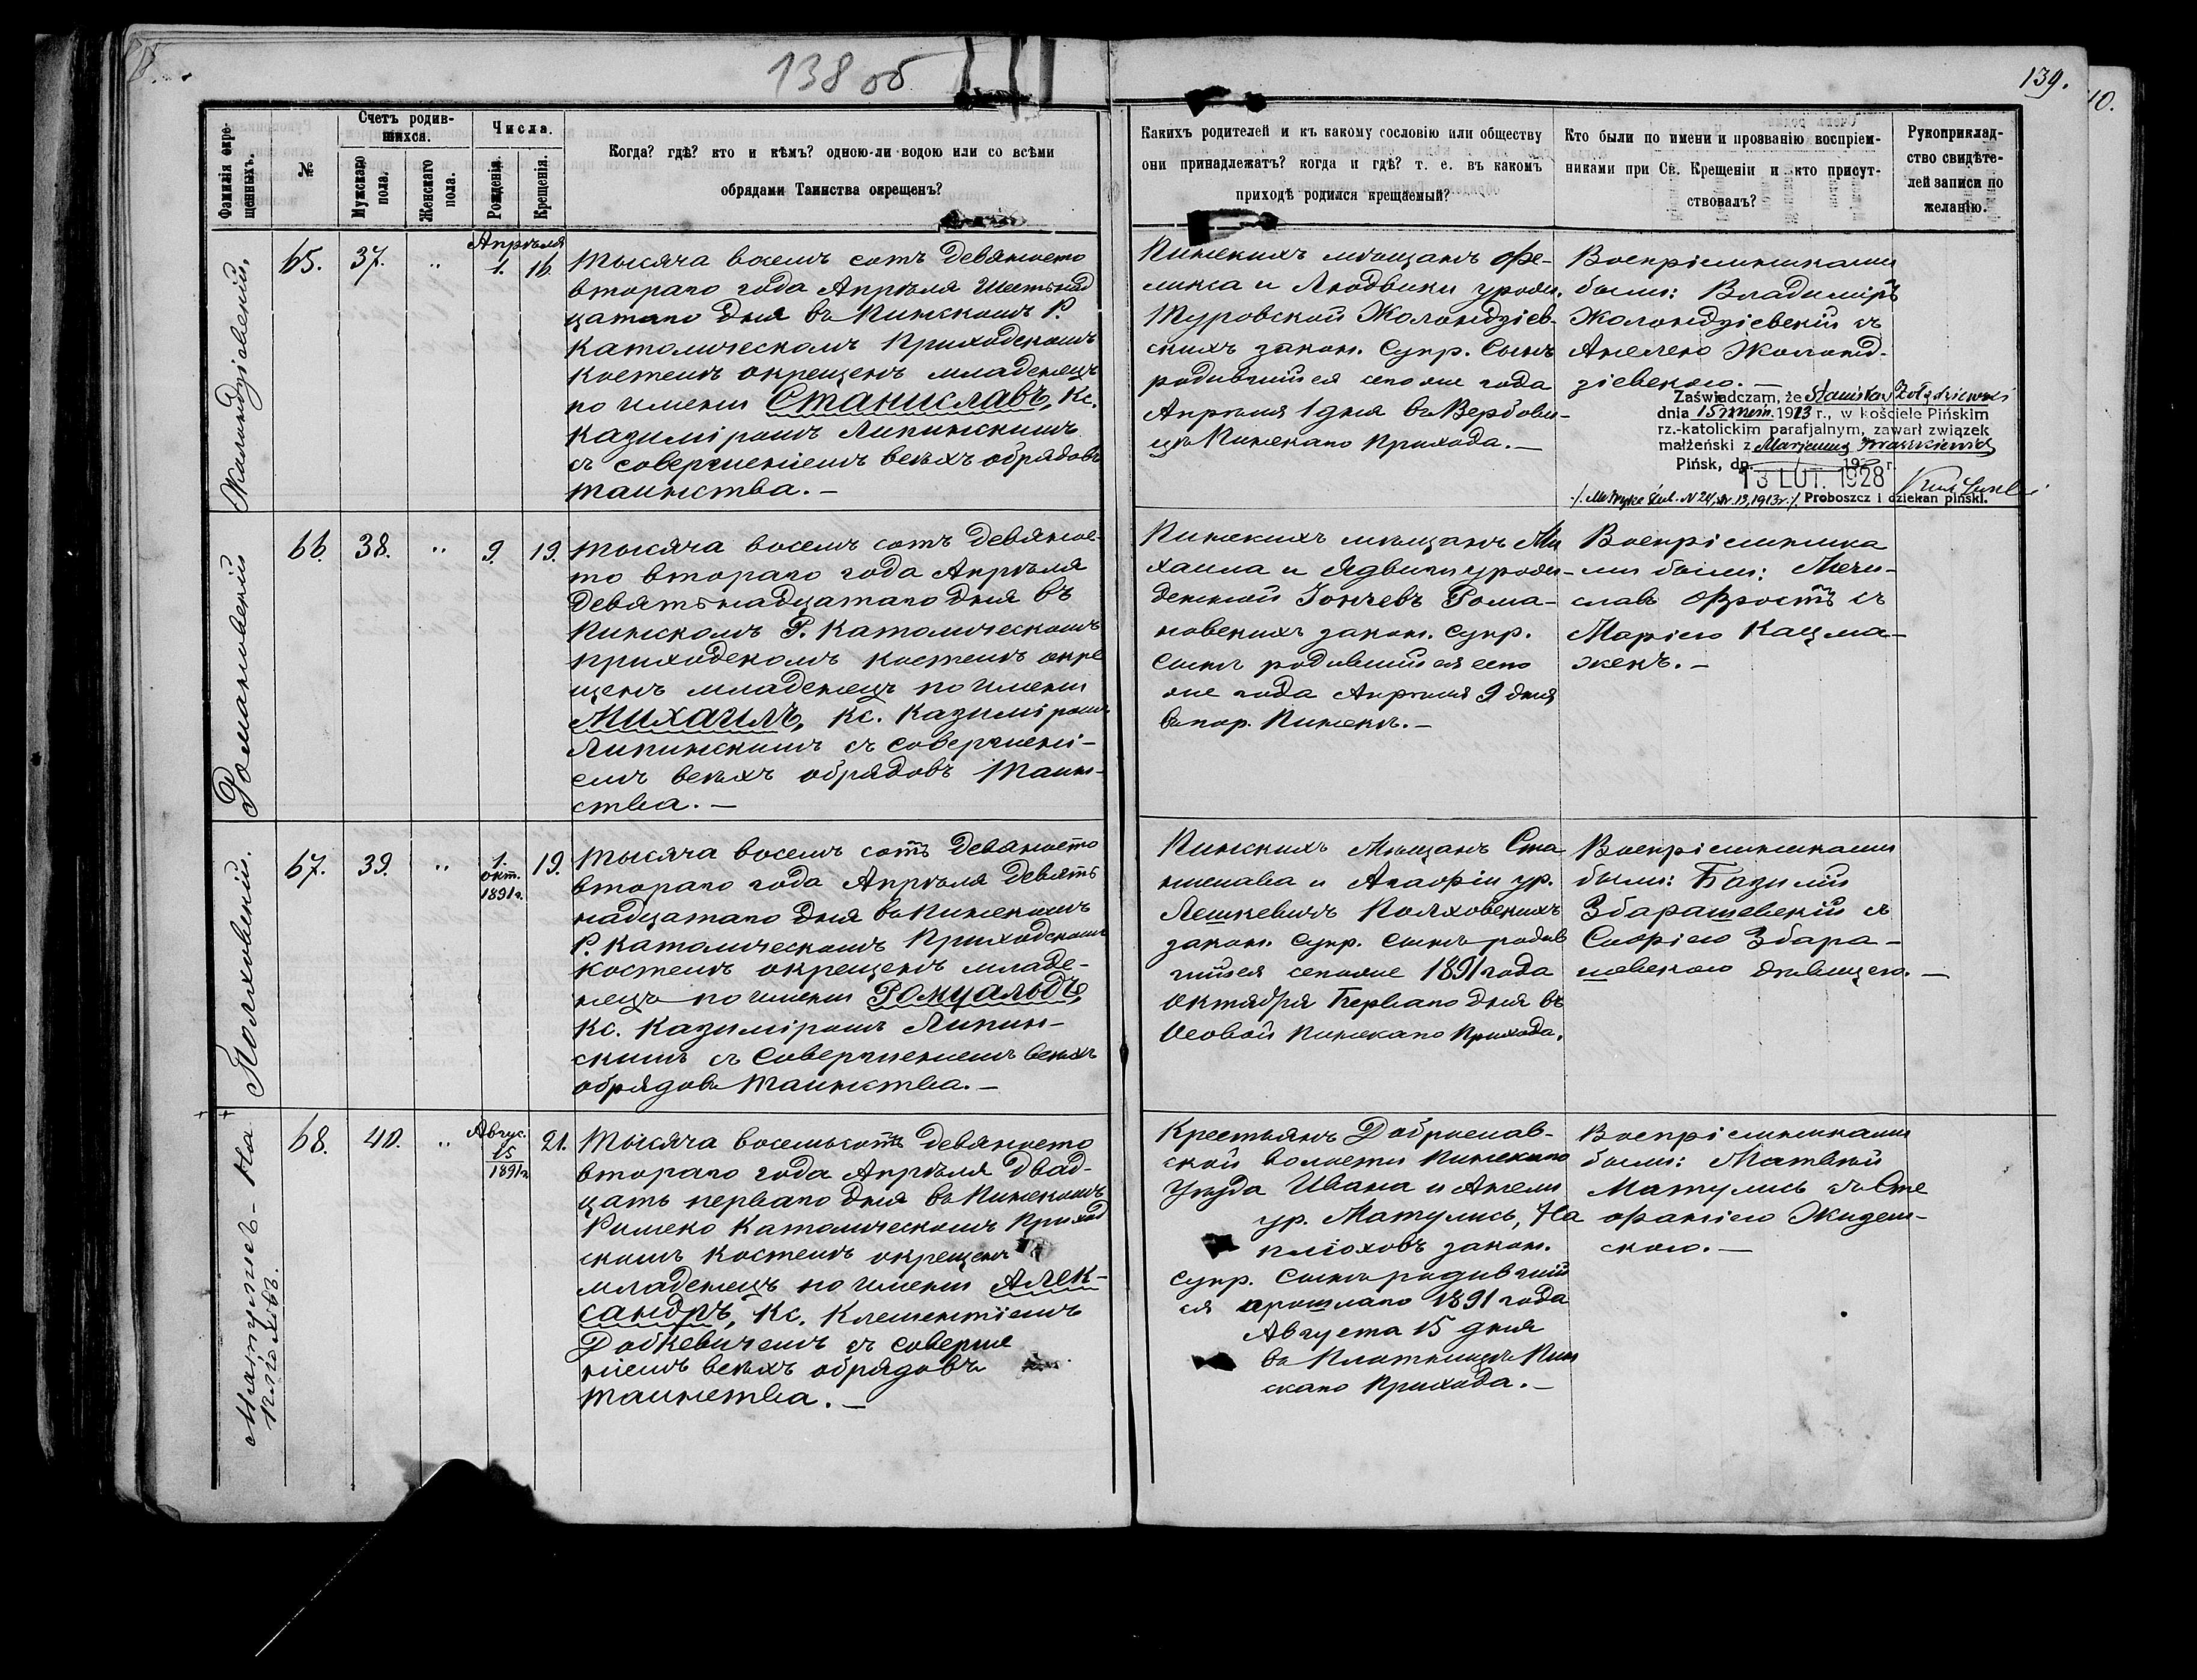 138 об
139.
10.
Фамилія окре-
щенныхъ.
№
Счетъ родив-
шихся.
Мужскаго
пола.
Женскаго
пола.
Числа.
Рожденія.
Крещенія.
Когда? гдѣ? кто и кѣмъ? одною-ли водою или со всѣми
обрядами Таинства окрещенъ?
Какихъ родителей и къ какому сословію или обществу
они принадлежатъ? когда и гдѣ? т. е. въ какомъ
приходѣ родился крещаемый?
Кто были по имени и прозванію воспріем-
никами при Св. Крещеніи и кто присут-
ствовалъ?
Рукоприклад-
ство свидѣте-
лей записи по
желанію.
Жолондзіовскій.
65.
37.
"
Апрѣля
1.
16.
Тысяча восемъ сотъ девяносто
втораго года Апрѣля Шестьнад
цатаго дня въ Пинскомъ Р.
Католическомъ Приходскомъ
Костелѣ окрещенъ младенецъ
по имени Станиславъ, Кс.
Казиміромъ Липинскимъ
съ совершеніемъ всѣхъ обрядовъ
таинства. –
Пинскихъ мѣщанъ Фе-
ликса и Людвики урожд.
Туровской Жолондзіев-
скихъ закон. Супр. Сынъ
родившійся сего же года
Апрѣля 1 дня въ Вербови-
цѣ Пинскаго Прихода. –
Воспріемниками
были: Владиміръ
Жолондзіевскій съ
Анелею Жолонд-
зіевскою. –
Zaświadczam, że Stanisław Żołądziewski
dnia 15 1913 r., w kościele Pińskim
rz.-katolickim parafjalnym, zawarł związek
małżeński z Marjanną Iwaszkiewicz
Pińsk, dn. 192 r.
13 LUT. 1928
Proboszcz i dziekan piński.
Романовскій
66.
38.
"
9.
19.
Тысяча восемъ сотъ девянос-
то втораго года Апрѣля
девятьнадцатаго дня въ
Пинскомъ Р. Католическомъ
приходскомъ костелѣ окре
щенъ младенецъ по имени
Михаилъ, Кс. Казиміромъ
Липинскимъ съ совершені-
емъ всѣхъ обрядовъ Таин-
ства. –
Пинскихъ мѣщанъ Ми
хаила и Ядвиги урож-
денной Гончевъ Рома-
новскихъ закон. Супр.
Сынъ родившійся сего
же года Апрѣля 9 дня
въ гор. Пинскѣ. –
Воспріемника
ми были: Мечи-
славъ Фростъ съ
Маріею Кацма-
жекъ. –
Полховскій.
67.
39.
"
1.
окт.
1891 г.
19.
Тысяча восемъ сотъ девяносто
втораго года Апрѣля девять
надцатаго дня въ Пинскомъ
Р. Католическомъ Приходскомъ
Костелѣ окрещенъ младе-
нецъ по имени Ромуальдъ,
Кс. Казиміромъ Липин-
скимъ съ совершеніемъ всѣхъ
обрядовъ таинства. –
Пинскихъ Мѣщанъ Ста
нислава и Агафіи ур.
Лешкевичъ Полховскихъ
закон. Супр. Сынъ родив
шійся 1891 года
Октября Перваго дня въ
Особой Пинскаго Прихода.
Воспріемниками
были: Базилій
Збарашевскій съ
Софіею Збара-
шевскою дѣвицею. –
Матулис- На
плюховъ.
68.
40.
"
Август.
15
1891 г.
21.
Тысяча восемьсотъ девяносто
втораго года Апрѣля двад-
цать перваго дня въ Пинскомъ
Римско Католическомъ Приход
скомъ костелѣ окрещенъ
младенецъ по имени Алек-
сандръ, Кс. Клементіемъ
съ соверше
ніемъ всѣхъ обрядовъ
таинства. –
Крестьянъ Доброслав-
ской волости Пинскаго
Уѣзда Ивана и Анели
ур. Матулисъ, На
плюховъ закон.
Супр. Сынъ родившій
ся прошлаго 1891 года
Августа 15 дня
въ Плотницѣ Пин
скаго Прихода. –
Воспріемниками
были: Матвѣй
Матулисъ съ Сте
фаніею Жидец-
скою. –